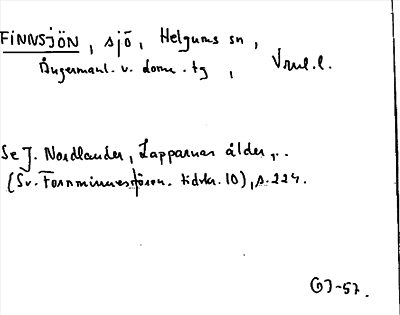 FINNSJÖN, sjö, Helgums sn,
Ångermanl. v. doms.tg, Vrnl.l.
Se J. Nordlander, Lapparnas ålder...
(Sv. Fornminnesfören. tidskr. 10), s. 224.
GJ-57.